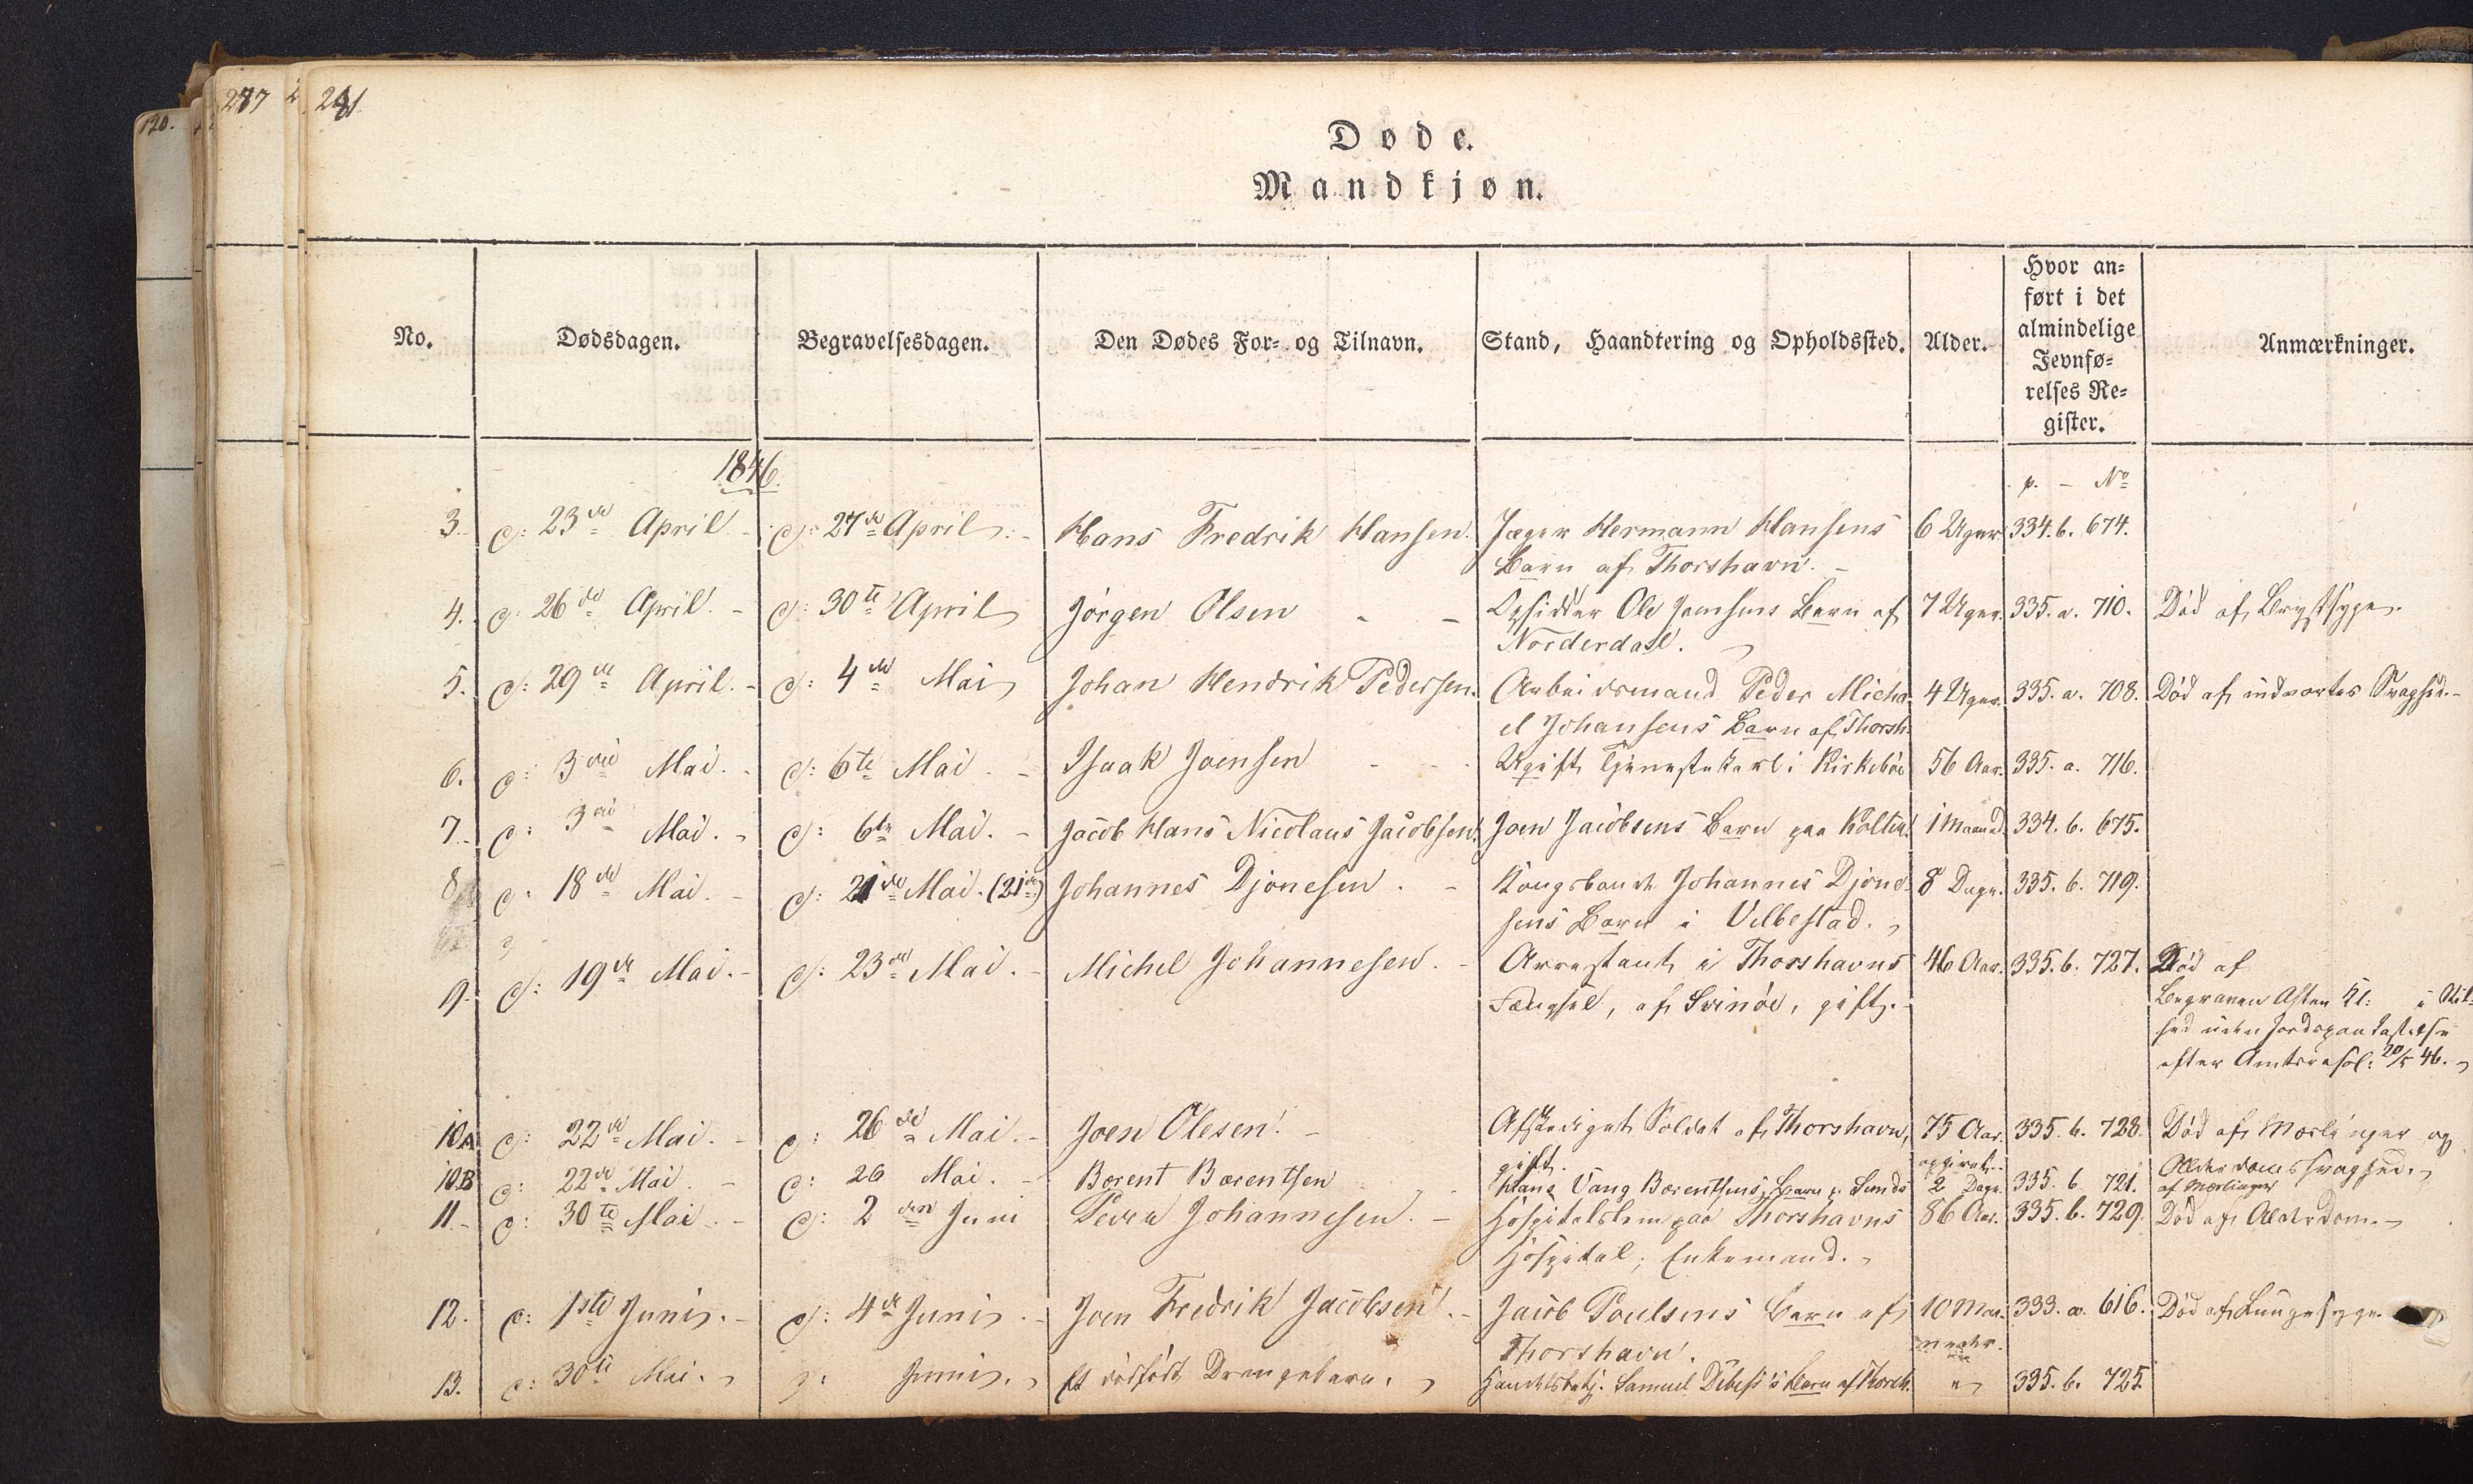 120.
277
281.
Døde.
Mandkjøn.
No.
Dødsdagen.
Begravelsesdagen.
Den Dødes For- og Tilnavn.
Stand, Haandtering og Opholdssted.
Alder.
Hvor an-
ført i det
almindelige
Jevnfø-
relses Re-
gister.
Anmærkninger.
1846.
p. - No
3. d: 23de April - d: 27de April. - Hans Fredrik Hansen. Jæger Hermann Hansens 6 Uger. 334. b. 674.
Barn af Thorshavn. -
4. d: 26de April. - d: 30te April Jørgen Olsen - - Opsidder Ole Joensens Barn af 7 Uger. 335. a. 710. Død af Brystsyge.
Norderdahl.
5. d: 29de April. - d: 4de Mai Johan Hendrik Pedersen. Arbeidsmand Peder Micha- 4 Uger. 335. a. 708. Død af indvortes Svaghed. -
el Johansens Barn af Thorsh.
6. d: 3die Mai. - d: 6te Mai. - Isaak Joensen - - - Ugift Tjenestekarl i Kirkebøe 56 Aar. 335. a. 716.
7. d: 3die Mai. - d: 6te Mai. - Jacob Hans Nicolaus Jacobsen. Joen Jacobsens Barn paa Kolter. 1 Maaned. 334. b. 675.
8 d: 18de Mai. - d: 21de Mai. (21de) Johannes Djonesen. - Kongsbonde Johannes Djone- 8 Dage. 335. b. 719.
sens Barn i Velbestad.
9. d: 19de Mai. - d: 23de Mai. - Michel Johannesen. - Arrestant i Thorshavns 46 Aar. 335. b. 727. Død af
Fængsel, af Svinøe, gift. - Begraven Aften Kl: i Stil-
hed uden Jordspaakastelse
efter Amtsresol: 20/5 46.
10A d: 22de Mai. - d: 26de Mai. - Joen Olesen. - Afskediget Soldat af Thorshavn, 75 Aar. 335. b. 728. Død af Mæslinger og
gift. opgivet. Alderdomssvaghed.
10B d: 22de Mai. - d: 26 Mai. - Bærent Bærentsen - Hans Vang Bærentsens Barn i Sund 2 Dage. 335. b. 721. af Mæslinger
11. - d: 30te Mai. - d: 2den Juni Peder Johannesen. - Hospitalslem paa Thorshavns 86 Aar. 335. b. 729. Død af Alderdom. -
Hospital; Enkemand.
12. d: 1ste Juni. - d: 4de Juni. - Joen Fredrik Jacobsen. - Jacob Poulsens Barn af 10 Maa- 333. a. 616. Død af Lungesyge.
Thorshavn. neder.
13. d: 30te Mai. d: Juni. Et dødfødt Drengebarn. Handelsbetj. Samuel Debess's Barn af Thorsh. " 335. b. 725.